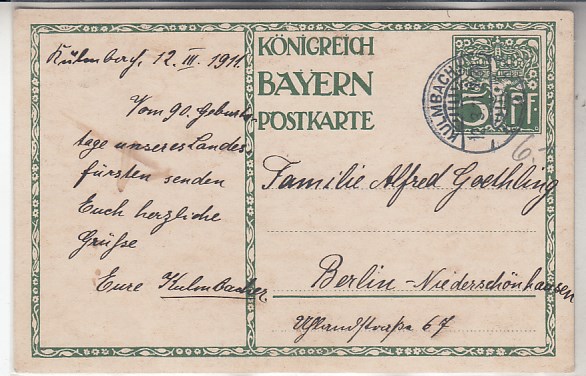 Kulmbach, 12. III. 1911.
Vom 90. Geburts-
tage unseres Landes-
fürsten senden
Euch herzliche
Grüße
Eure Kulmbacher
KÖNIGREICH
BAYERN
POSTKARTE
5 PF
KULMBACH
6.-
Familie Alfred Goethling
Berlin-Niederschönhausen
Uhlandstraße 67